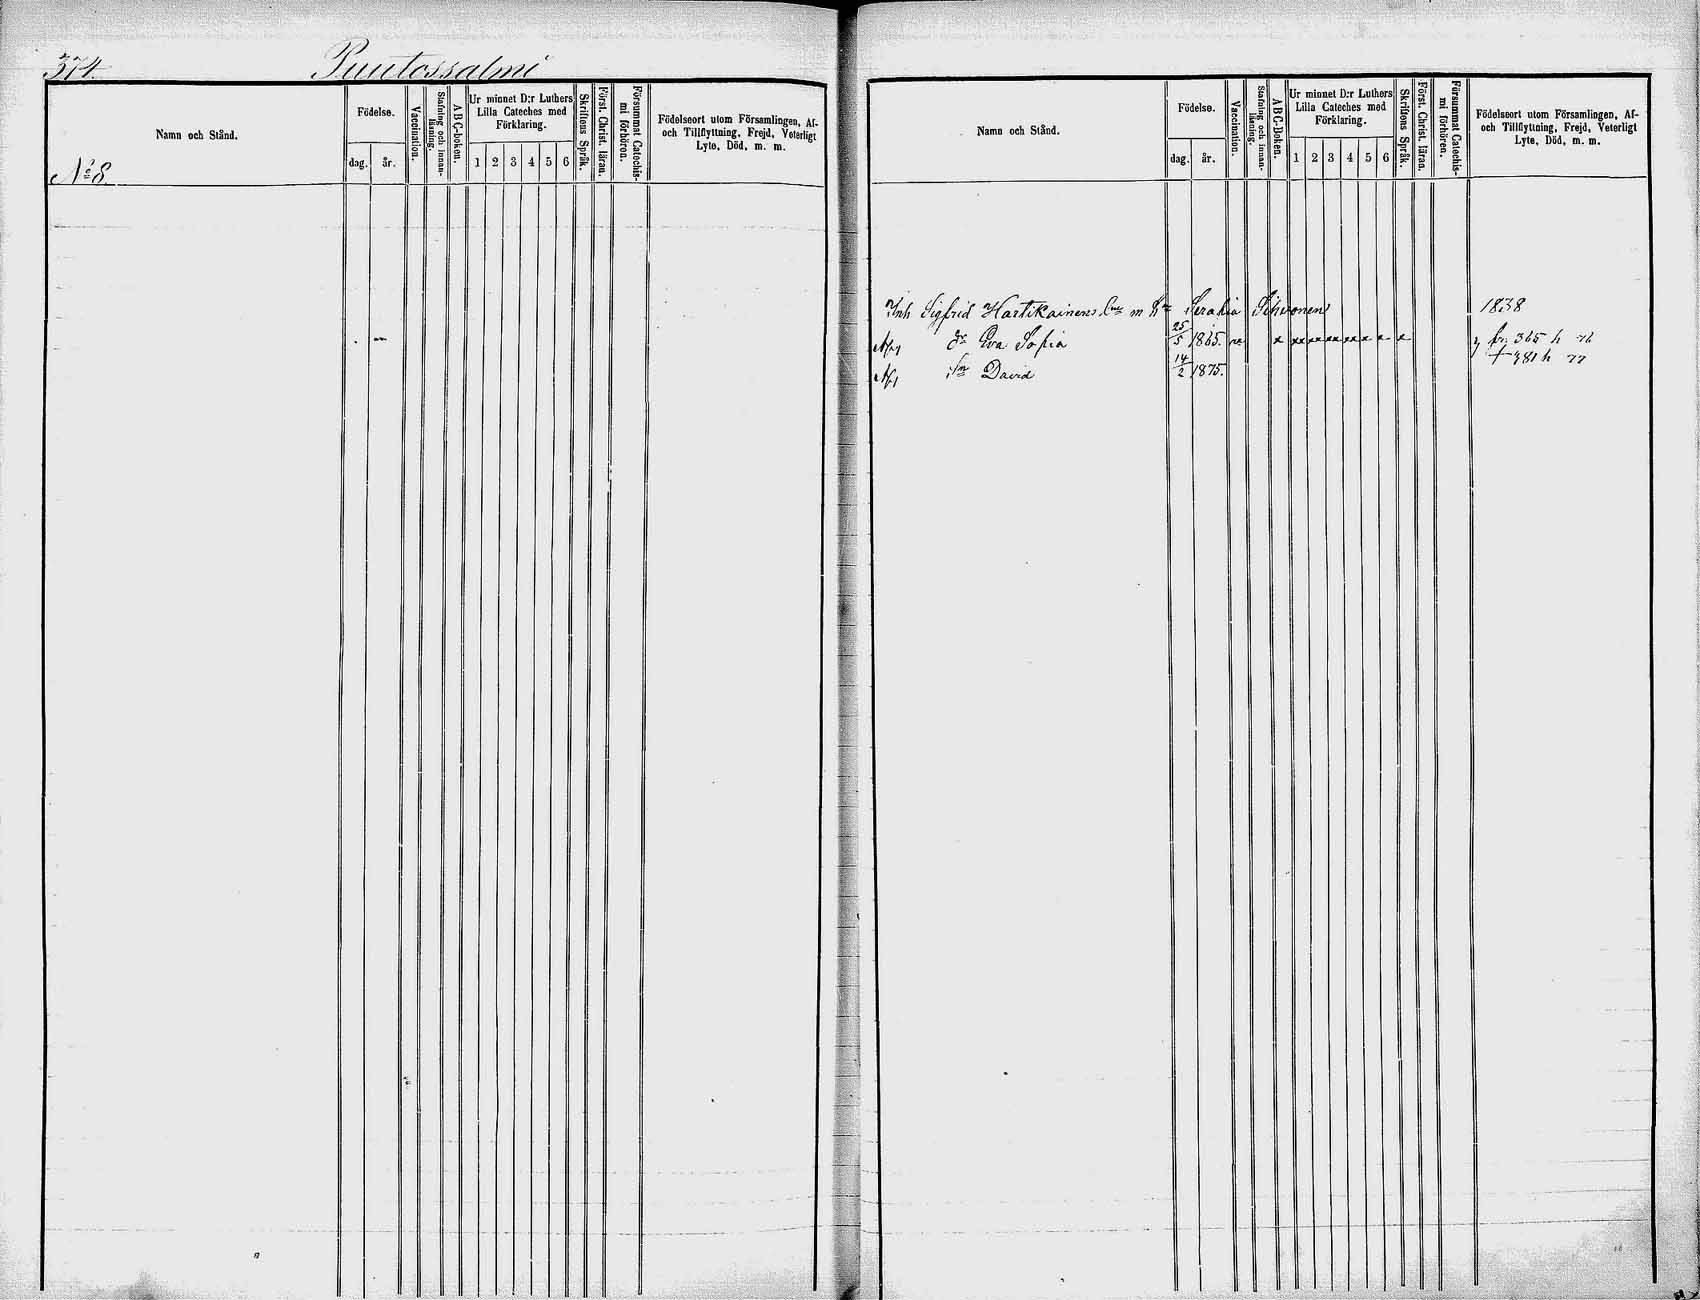 374.
Puutossalmi
Namn och Stånd.
Födelse.
dag. år.
Vaccination.
Stafning och innan-
läsning.
ABC-boken.
Ur minnet D:r Luthers
Lilla Cateches med
Förklaring.
1 2 3 4 5 6
Skriftens Språk.
Först. Christ. läran.
Försummat Catechis-
mi förhören.
Födelseort utom Församlingen, Af-
och Tillflyttning, Frejd, Veterligt
Lyte, Död, m. m.
No 8.
Namn och Stånd.
Födelse.
dag. år.
Vaccination.
Stafning och innan-
läsning.
ABC-Boken.
Ur minnet D:r Luthers
Lilla Cateches med
Förklaring.
1 2 3 4 5 6
Skriftens Språk.
Först. Christ. läran.
Försummat Catechis-
mi förhören.
Födelseort utom Församlingen, Af-
och Tillflyttning, Frejd, Veterligt
Lyte, Död, m. m.
Inh Sigfrid Hartikainens m Serahia Sihvonen 1838
dr Eva Sofia 25/5 1865. x x x x x x x x fr. 365 h 76
sn David 14/2 1875. + 381 h 77